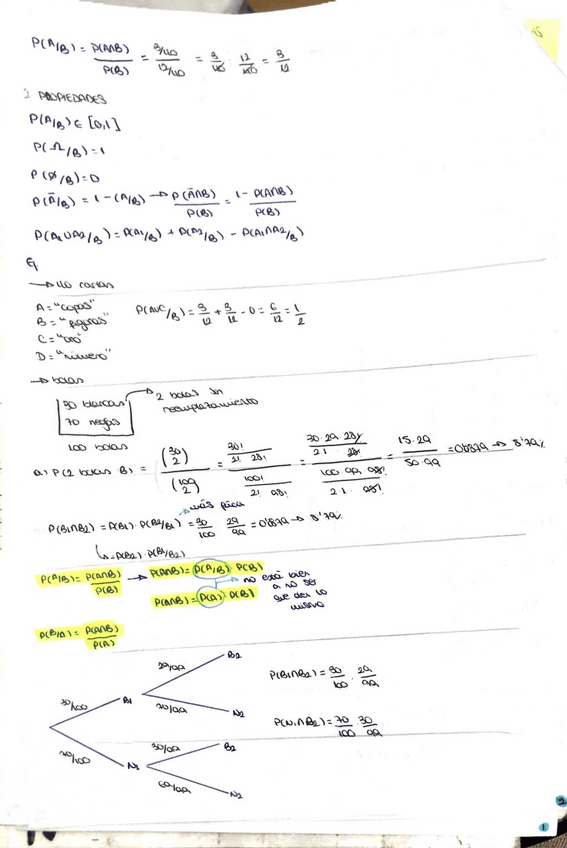 P(A/B) = P(A∩B)/P(B) = 3/40 / 12/40 = 3/40 · 12/40 = 3/12
2 PROPIEDADES
P(A/B) ∈ [0,1]
P(Ω/B) = 1
P(Ø/B) = 0
P(Ā/B) = 1 - (A/B) → P(Ā∩B)/P(B) = 1 - P(A∩B)/P(B)
P(A1∪A2/B) = P(A1/B) + P(A2/B) - P(A1∩A2/B)
Ej
→ 40 cartas
A = "copas"
B = "figuras"
C = "oro"
D = "número"
P(A∪C/B) = 3/12 + 3/12 - 0 = 6/12 = 1/2
→ bolas
30 blancas
70 negras
→ 2 bolas sin
reemplazamiento
100 bolas
a) P(2 bolas B) = (30 2)/(100 2) = 30!/2! 28! / 100!/2! 98! = 30·29·28!/2·1·28! / 100·99·98!/2·1·98! = 15·29/50·99 = 0'0879 → 8'79%
→ más fácil
P(B1∩B2) = P(B1) · P(B2/B1) = 30/100 · 29/99 = 0'0879 → 8'79%
P(B2) · P(B1/B2)
P(A/B) = P(A∩B)/P(B) → P(A∩B) = P(A/B) · P(B)
P(A∩B) = P(A) · P(B)
→ no está bien
a no ser
que den lo
mismo
P(B/A) = P(A∩B)/P(A)
30/100 B1
29/99 B2
70/99 N2
70/100 N1
30/99 B2
69/99 N2
P(B1∩B2) = 30/100 · 29/99
P(N1∩B2) = 70/100 · 30/99
1